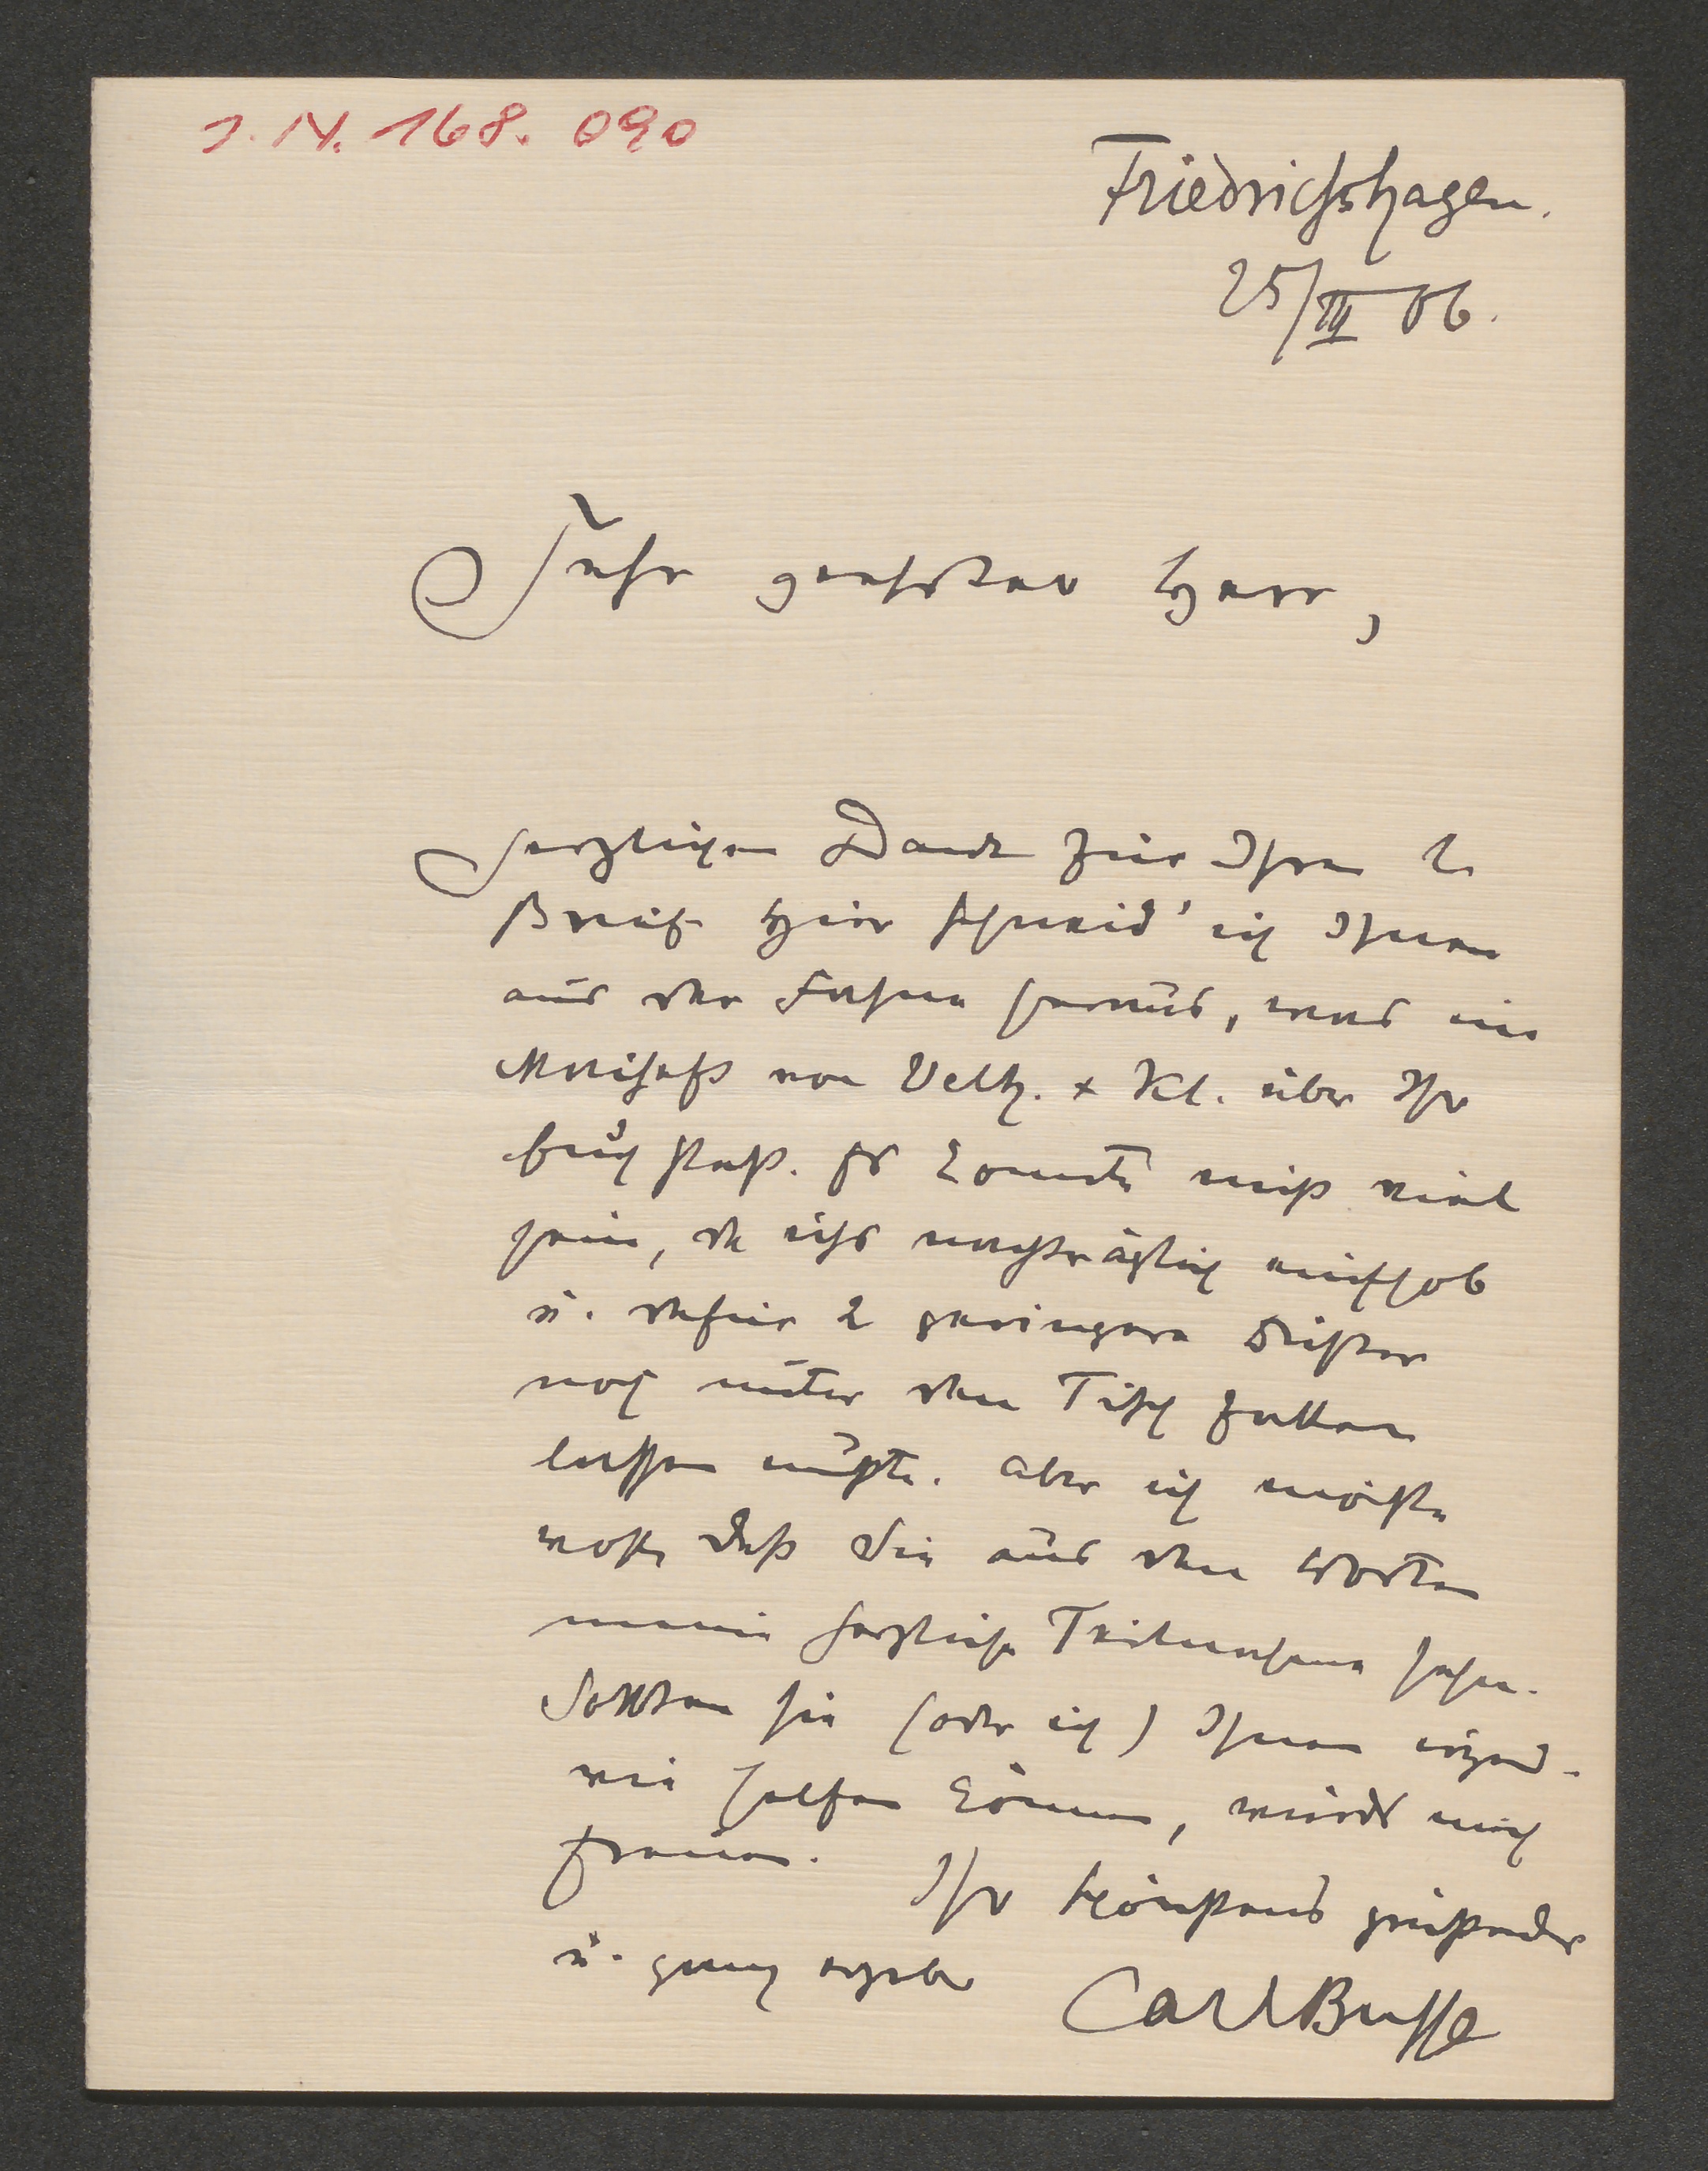 J. N. 168. 090
Friedrichshagen.
25/III 06.
Sehr geehrter Herr,
herzlichen Dank für Ihren l.
Brief. Hier schneid' ich Ihnen
aus der Fahne heraus, was im
Maiheft von Velh. + Kl. über Ihr
Buch steht. Es konnte nicht viel
sein, da ichs nachträglich einschob
u. dafür 2 geringere Dichter
noch unter den Tisch fallen
lassen mußte. Aber ich möchte
daß Sie aus den Worten
meine herzliche Teilnahme sehen.
Sollten sie (oder ich) Ihnen irgend-
wie helfen können, würds mich
freuen. Ihr schönstens grüßender
u. ganz ergeb.
Carl Busse